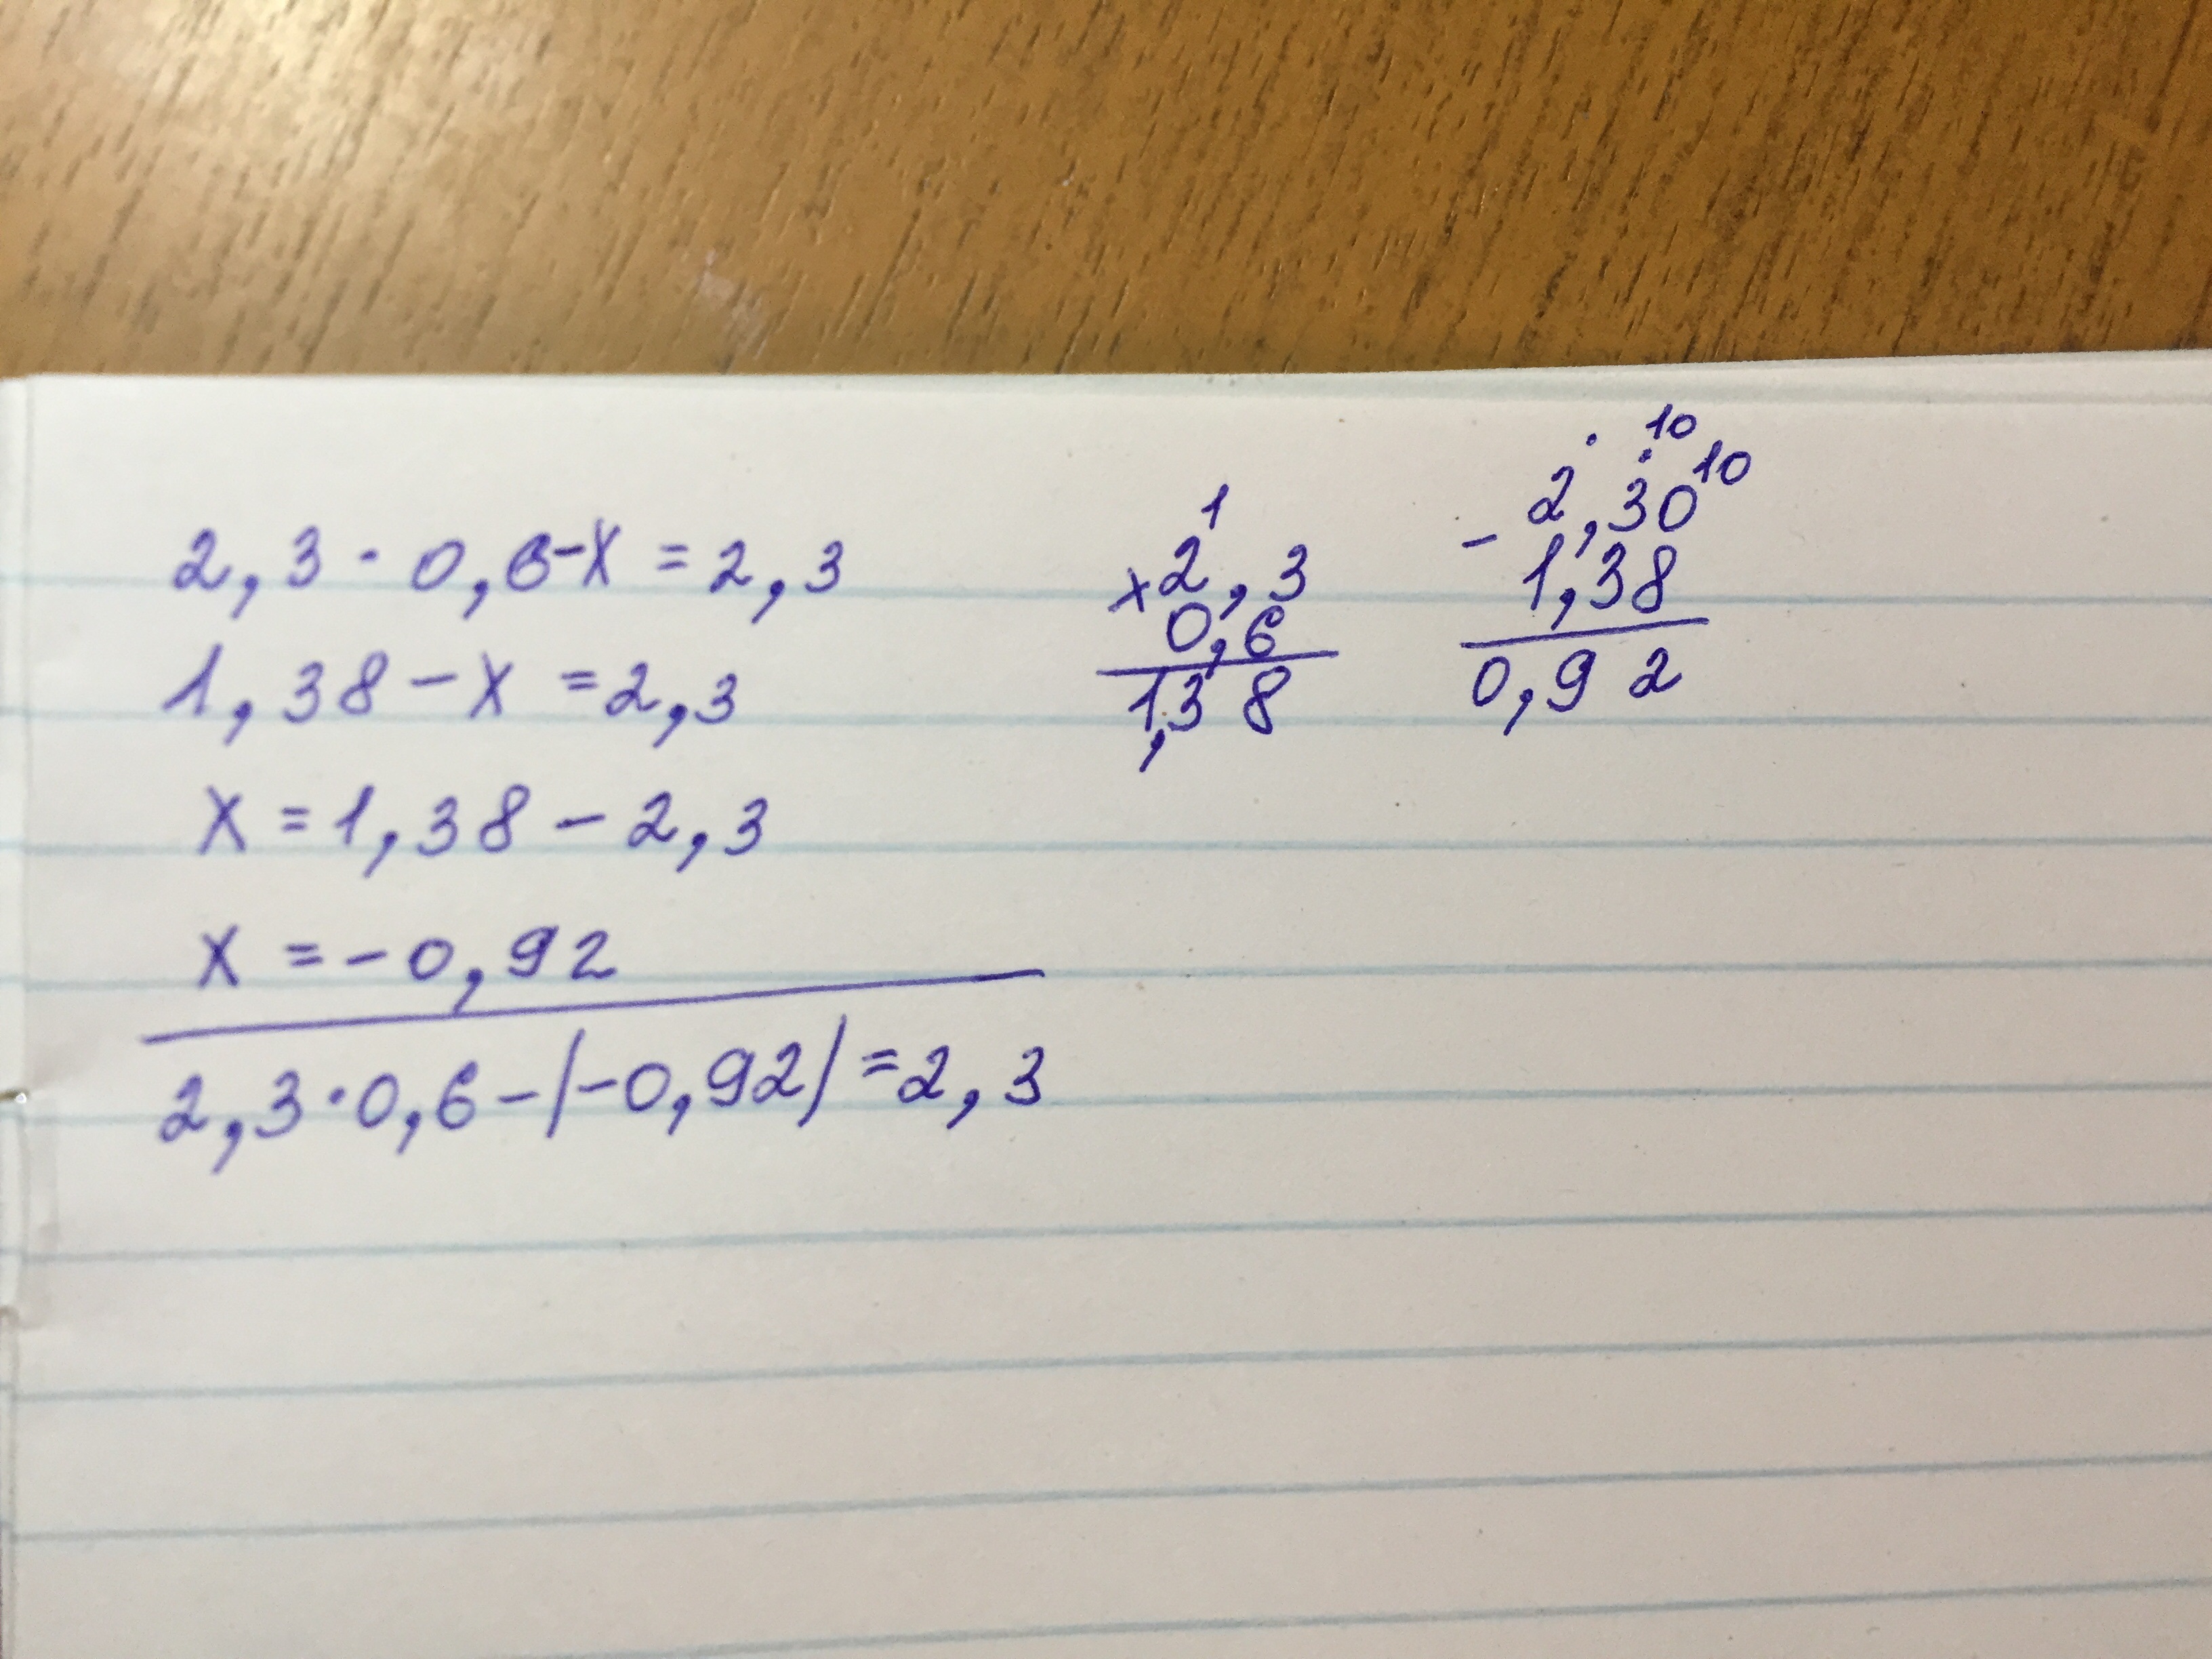 2,3 · 0,6 - x = 2,3
1,38 - x = 2,3
x = 1,38 - 2,3
x = -0,92
2,3 · 0,6 - (-0,92) = 2,3
1
× 2,3
0,6
1,38
10
10
- 2,30
1,38
0,92